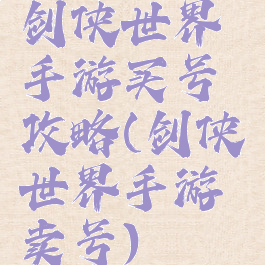 剑侠世界
手游买号
攻略(剑侠
世界手游
卖号)